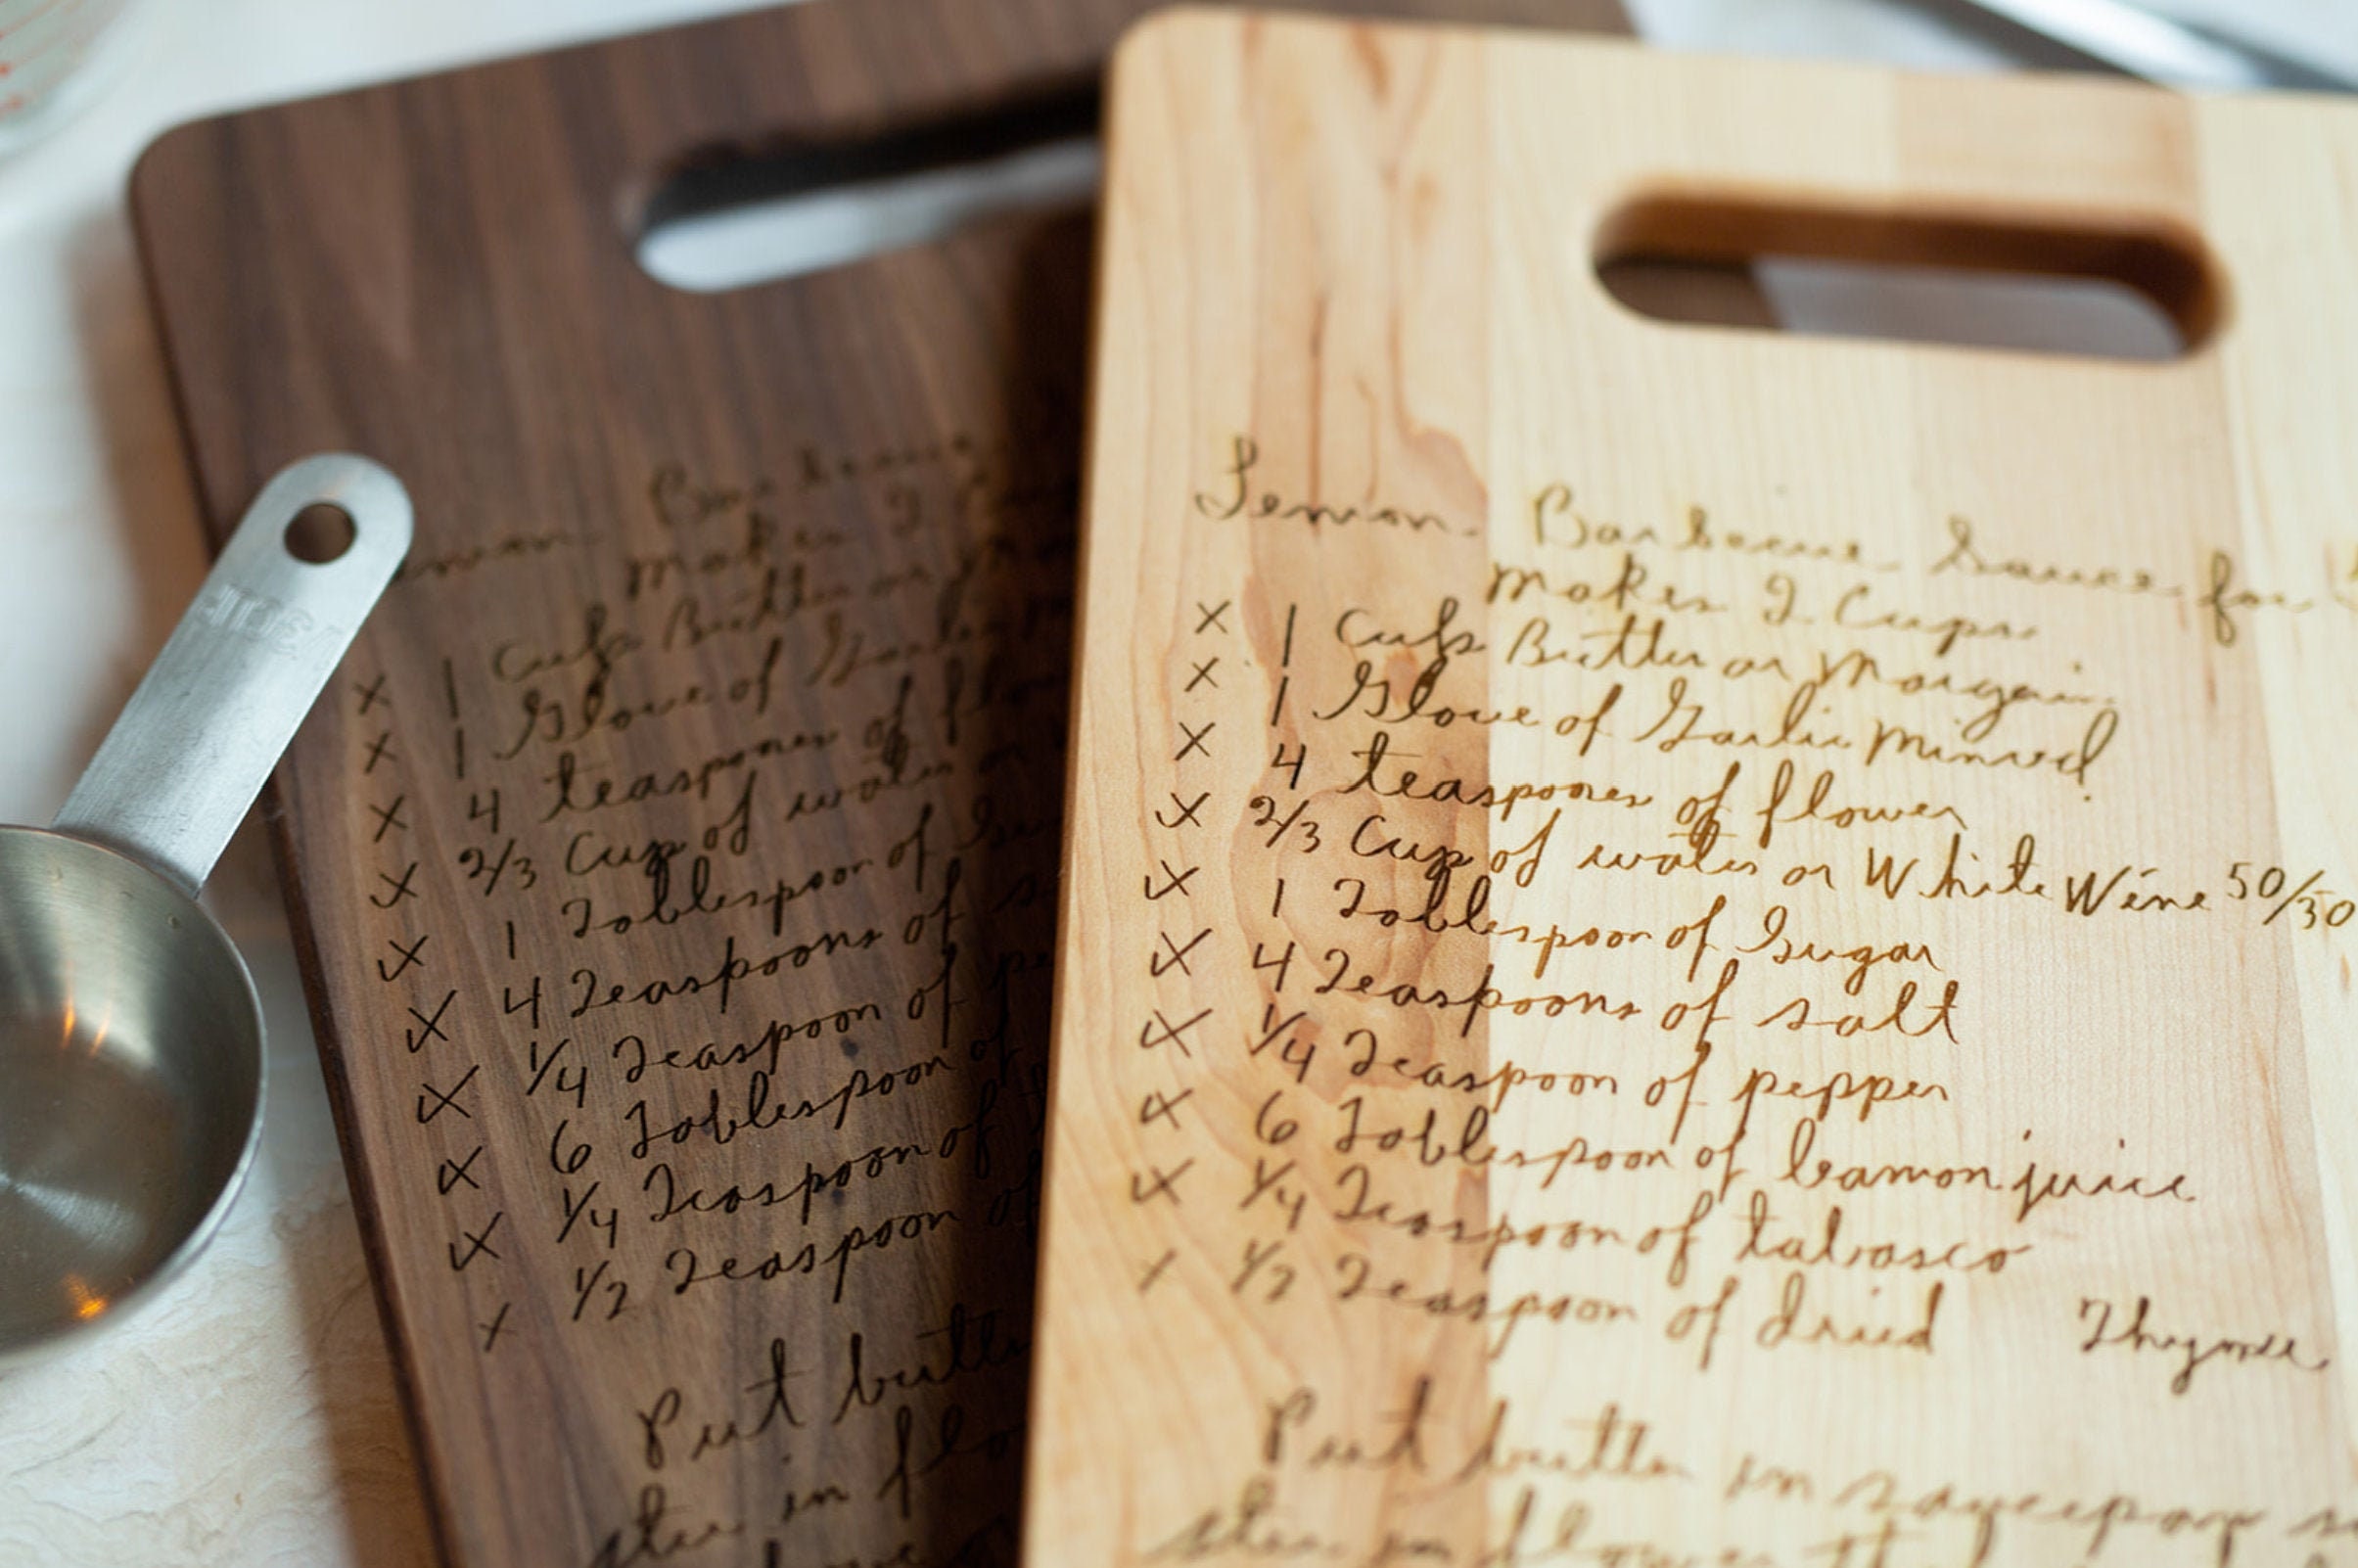 Lemon Barbecue Sauce for
Makes 2 Cups
x 1 Cup Butter or Margain
x 1 Glove of Garlic Minced
x 4 teaspones of flower
x 2/3 Cup of water or White Wine 50/50
x 1 Tablespoon of Sugar
x 4 Teaspoons of salt
x 1/4 Teaspoon of pepper
x 6 Tablespoon of leamon juice
x 1/4 Teaspoon of tabasco
x 1/2 Teaspoon of dried Thyme
Put butter in saucepan
stir in flower
Makes 2
x 1 Cup Butter or
x 1 Glove of Garlic
x 4 teaspones of flo
x 2/3 Cup of water or
x 1 Tablespoon of Su
x 4 Teaspoons of s
x 1/4 Teaspoon of pe
x 6 Tablespoon of
x 1/4 Teaspoon of
x 1/2 Teaspoon of
Put butte
stir in flo